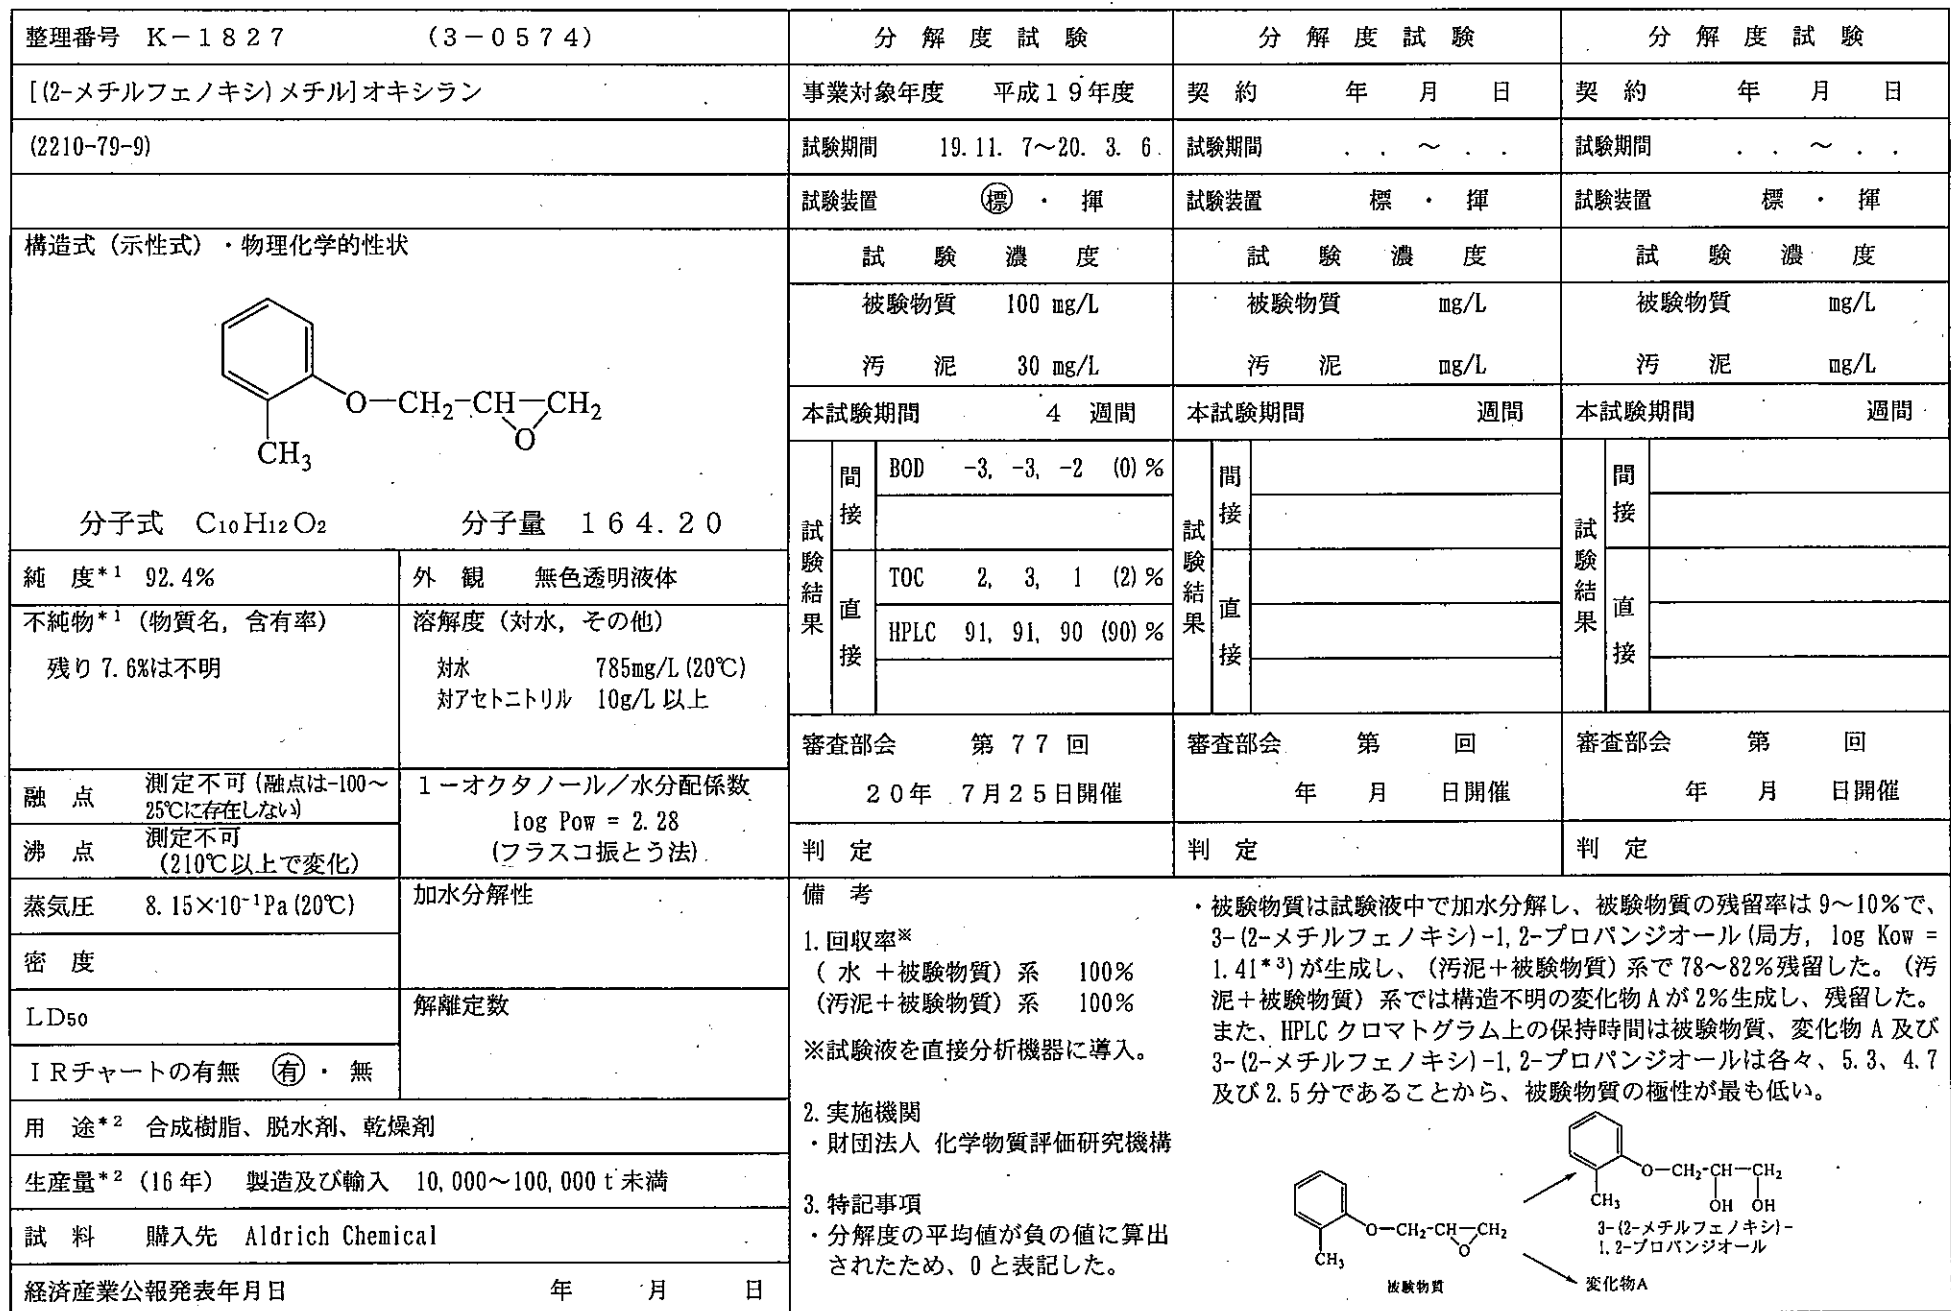 整理番号 K－1827 (3－0574)
[(2-メチルフェノキシ)メチル]オキシラン
(2210-79-9)
構造式（示性式）・物理化学的性状
O－CH2－CH－CH2
O
CH3
分子式 C10H12O2 分子量 164.20
純 度*1 92.4%
外 観 無色透明液体
不純物*1（物質名，含有率）
残り 7.6%は不明
溶解度（対水，その他）
対水 785mg/L(20℃)
対アセトニトリル 10g/L 以上
融 点 測定不可(融点は-100～
25℃に存在しない)
沸 点 測定不可
(210℃以上で変化)
1－オクタノール／水分配係数
log Pow = 2.28
(フラスコ振とう法)
蒸気圧 8.15×10-1Pa(20℃)
加水分解性
密 度
LD50
解離定数
IRチャートの有無 有・無
用 途*2 合成樹脂、脱水剤、乾燥剤
生産量*2（16年） 製造及び輸入 10,000～100,000t未満
試 料 購入先 Aldrich Chemical
経済産業公報発表年月日 年 月 日
分 解 度 試 験
事業対象年度 平成19年度
試験期間 19.11. 7～20. 3. 6
試験装置 標 ・ 揮
試 験 濃 度
被験物質 100 mg/L
汚 泥 30 mg/L
本試験期間 4 週間
試験結果
間接
BOD -3, -3, -2 (0)%
直接
TOC 2, 3, 1 (2)%
HPLC 91, 91, 90 (90)%
審査部会 第77回
20年 7月25日開催
判 定
分 解 度 試 験
契 約 年 月 日
試験期間 . . ～ . .
試験装置 標 ・ 揮
試 験 濃 度
被験物質 mg/L
汚 泥 mg/L
本試験期間 週間
試験結果
間接
直接
審査部会 第 回
年 月 日開催
判 定
分 解 度 試 験
契 約 年 月 日
試験期間 . . ～ . .
試験装置 標 ・ 揮
試 験 濃 度
被験物質 mg/L
汚 泥 mg/L
本試験期間 週間
試験結果
間接
直接
審査部会 第 回
年 月 日開催
判 定
備 考
1.回収率※
( 水 ＋被験物質）系 100%
(汚泥＋被験物質）系 100%
※試験液を直接分析機器に導入。
2.実施機関
・財団法人 化学物質評価研究機構
3.特記事項
・分解度の平均値が負の値に算出
されたため、0と表記した。
・被験物質は試験液中で加水分解し、被験物質の残留率は9～10%で、
3-(2-メチルフェノキシ)-1,2-プロパンジオール(局方, log Kow =
1.41*3)が生成し、（汚泥＋被験物質）系で78～82%残留した。（汚
泥＋被験物質）系では構造不明の変化物Aが2%生成し、残留した。
また、HPLCクロマトグラム上の保持時間は被験物質、変化物A及び
3-(2-メチルフェノキシ)-1,2-プロパンジオールは各々、5.3、4.7
及び2.5分であることから、被験物質の極性が最も低い。
O－CH2－CH－CH2
CH3 OH OH
3-(2-メチルフェノキシ)-
1,2-プロパンジオール
O－CH2－CH－CH2
O
CH3
被験物質
変化物A